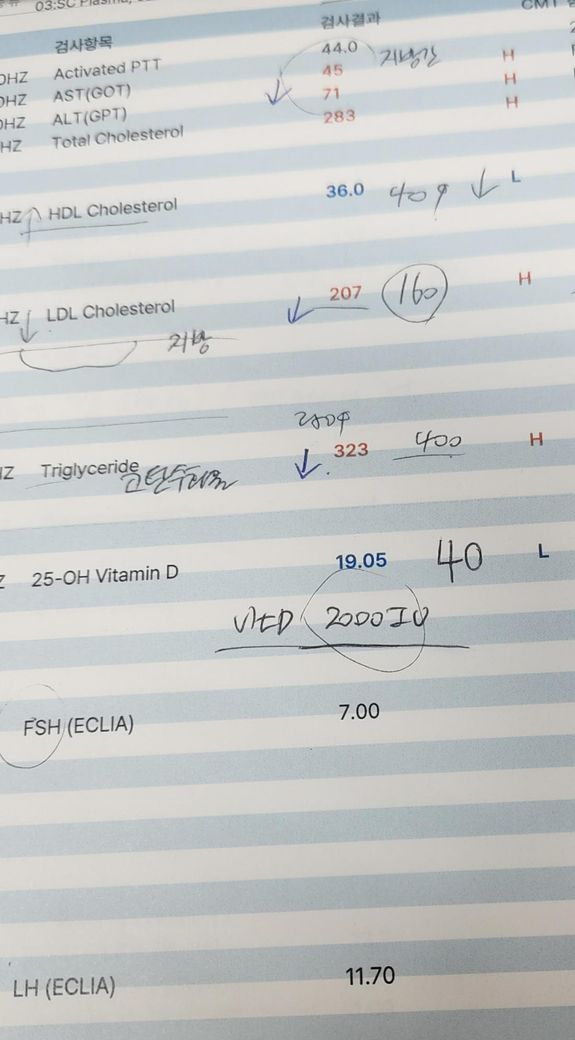 03:SC Plasma,
검사항목 검사결과
Activated PTT 44.0 지방간
AST(GOT) 45 H
ALT(GPT) 71 H
Total Cholesterol 283 H
HZ HDL Cholesterol 36.0 40 ↓ L
HZ ↓ LDL Cholesterol ↓ 207 160 H
지방
HZ Triglyceride ↓ 323 400 H
고탄수화물
25-OH Vitamin D 19.05 40 L
VitD 2000IU
FSH (ECLIA) 7.00
LH (ECLIA) 11.70